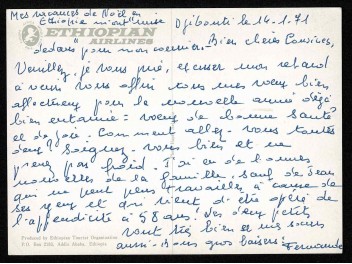 Mes vacances de Noël en
Ethiopie m'ont "mise
dedans" pour mon courrier.
ETHIOPIAN
AIRLINES
Djibouti le 14.1.71
Bien chères Cousines,
Veuillez, je vous prie, excuser mon retard
à venir vous offrir tous mes vœux bien
affectueux pour la nouvelle année déjà
bien entamée : vœux de bonne santé
et de joie. Comment allez-vous toutes
deux ? Soignez-vous bien et ne
prenez pas froid. J'ai eu de bonnes
nouvelles de la famille, sauf de Jean
qui ne peut plus travailler à cause de
ses yeux et qui vient d'être opéré de
l'appendicite à 58 ans. Les deux petits
vont très bien et mes sœurs
aussi. Bons gros baisers. Fernande
Produced by Ethiopian Tourist Organization
P.O. Box 2183, Addis Ababa, Ethiopia